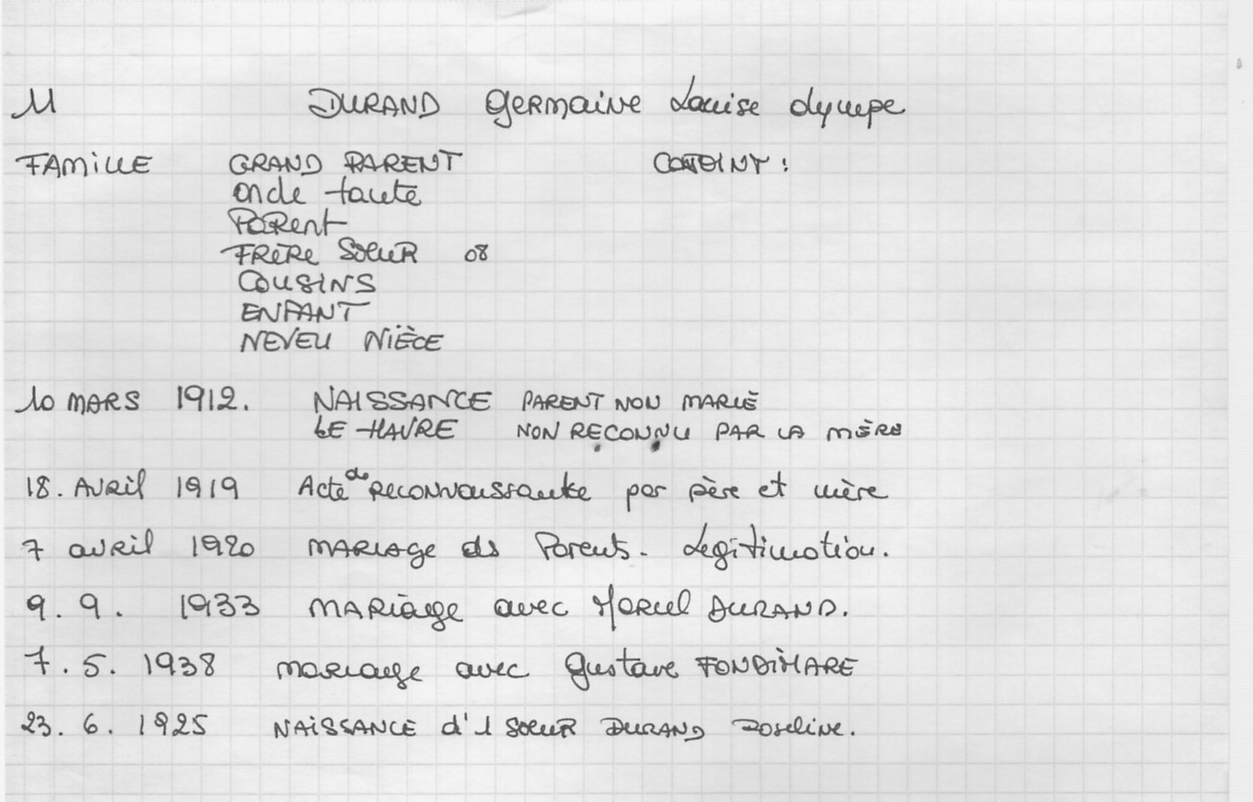 M DURAND Germaine Louise Olympe
FAMILLE GRAND PARENT CONJOINT :
oncle tante
PARENT
FRERE SOEUR 08
COUSINS
ENFANT
NEVEU NIÈCE
10 MARS 1912. NAISSANCE PARENT NON MARIÉ
LE HAVRE NON RECONNU PAR LA MÈRE
18. AVRIL 1919 Acte de RECONNAISSANCE par père et mère
7 avril 1920 MARIAGE ds Parents - Legitimation.
9. 9. 1933 MARIAGE avec Marcel DURAND.
7. 5. 1938 mariage avec Gustave FONDIMARE
23. 6. 1925 NAISSANCE d'1 SOEUR DURAND Roseline.